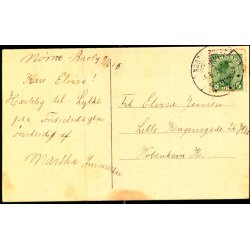 Nørre-
Kære Elvira!
Hjertelig til Lykke
paa Fødselsdagen
ønskes af
Martha
Frk. Elvira Jensen
Lille Kongensgade
København K.